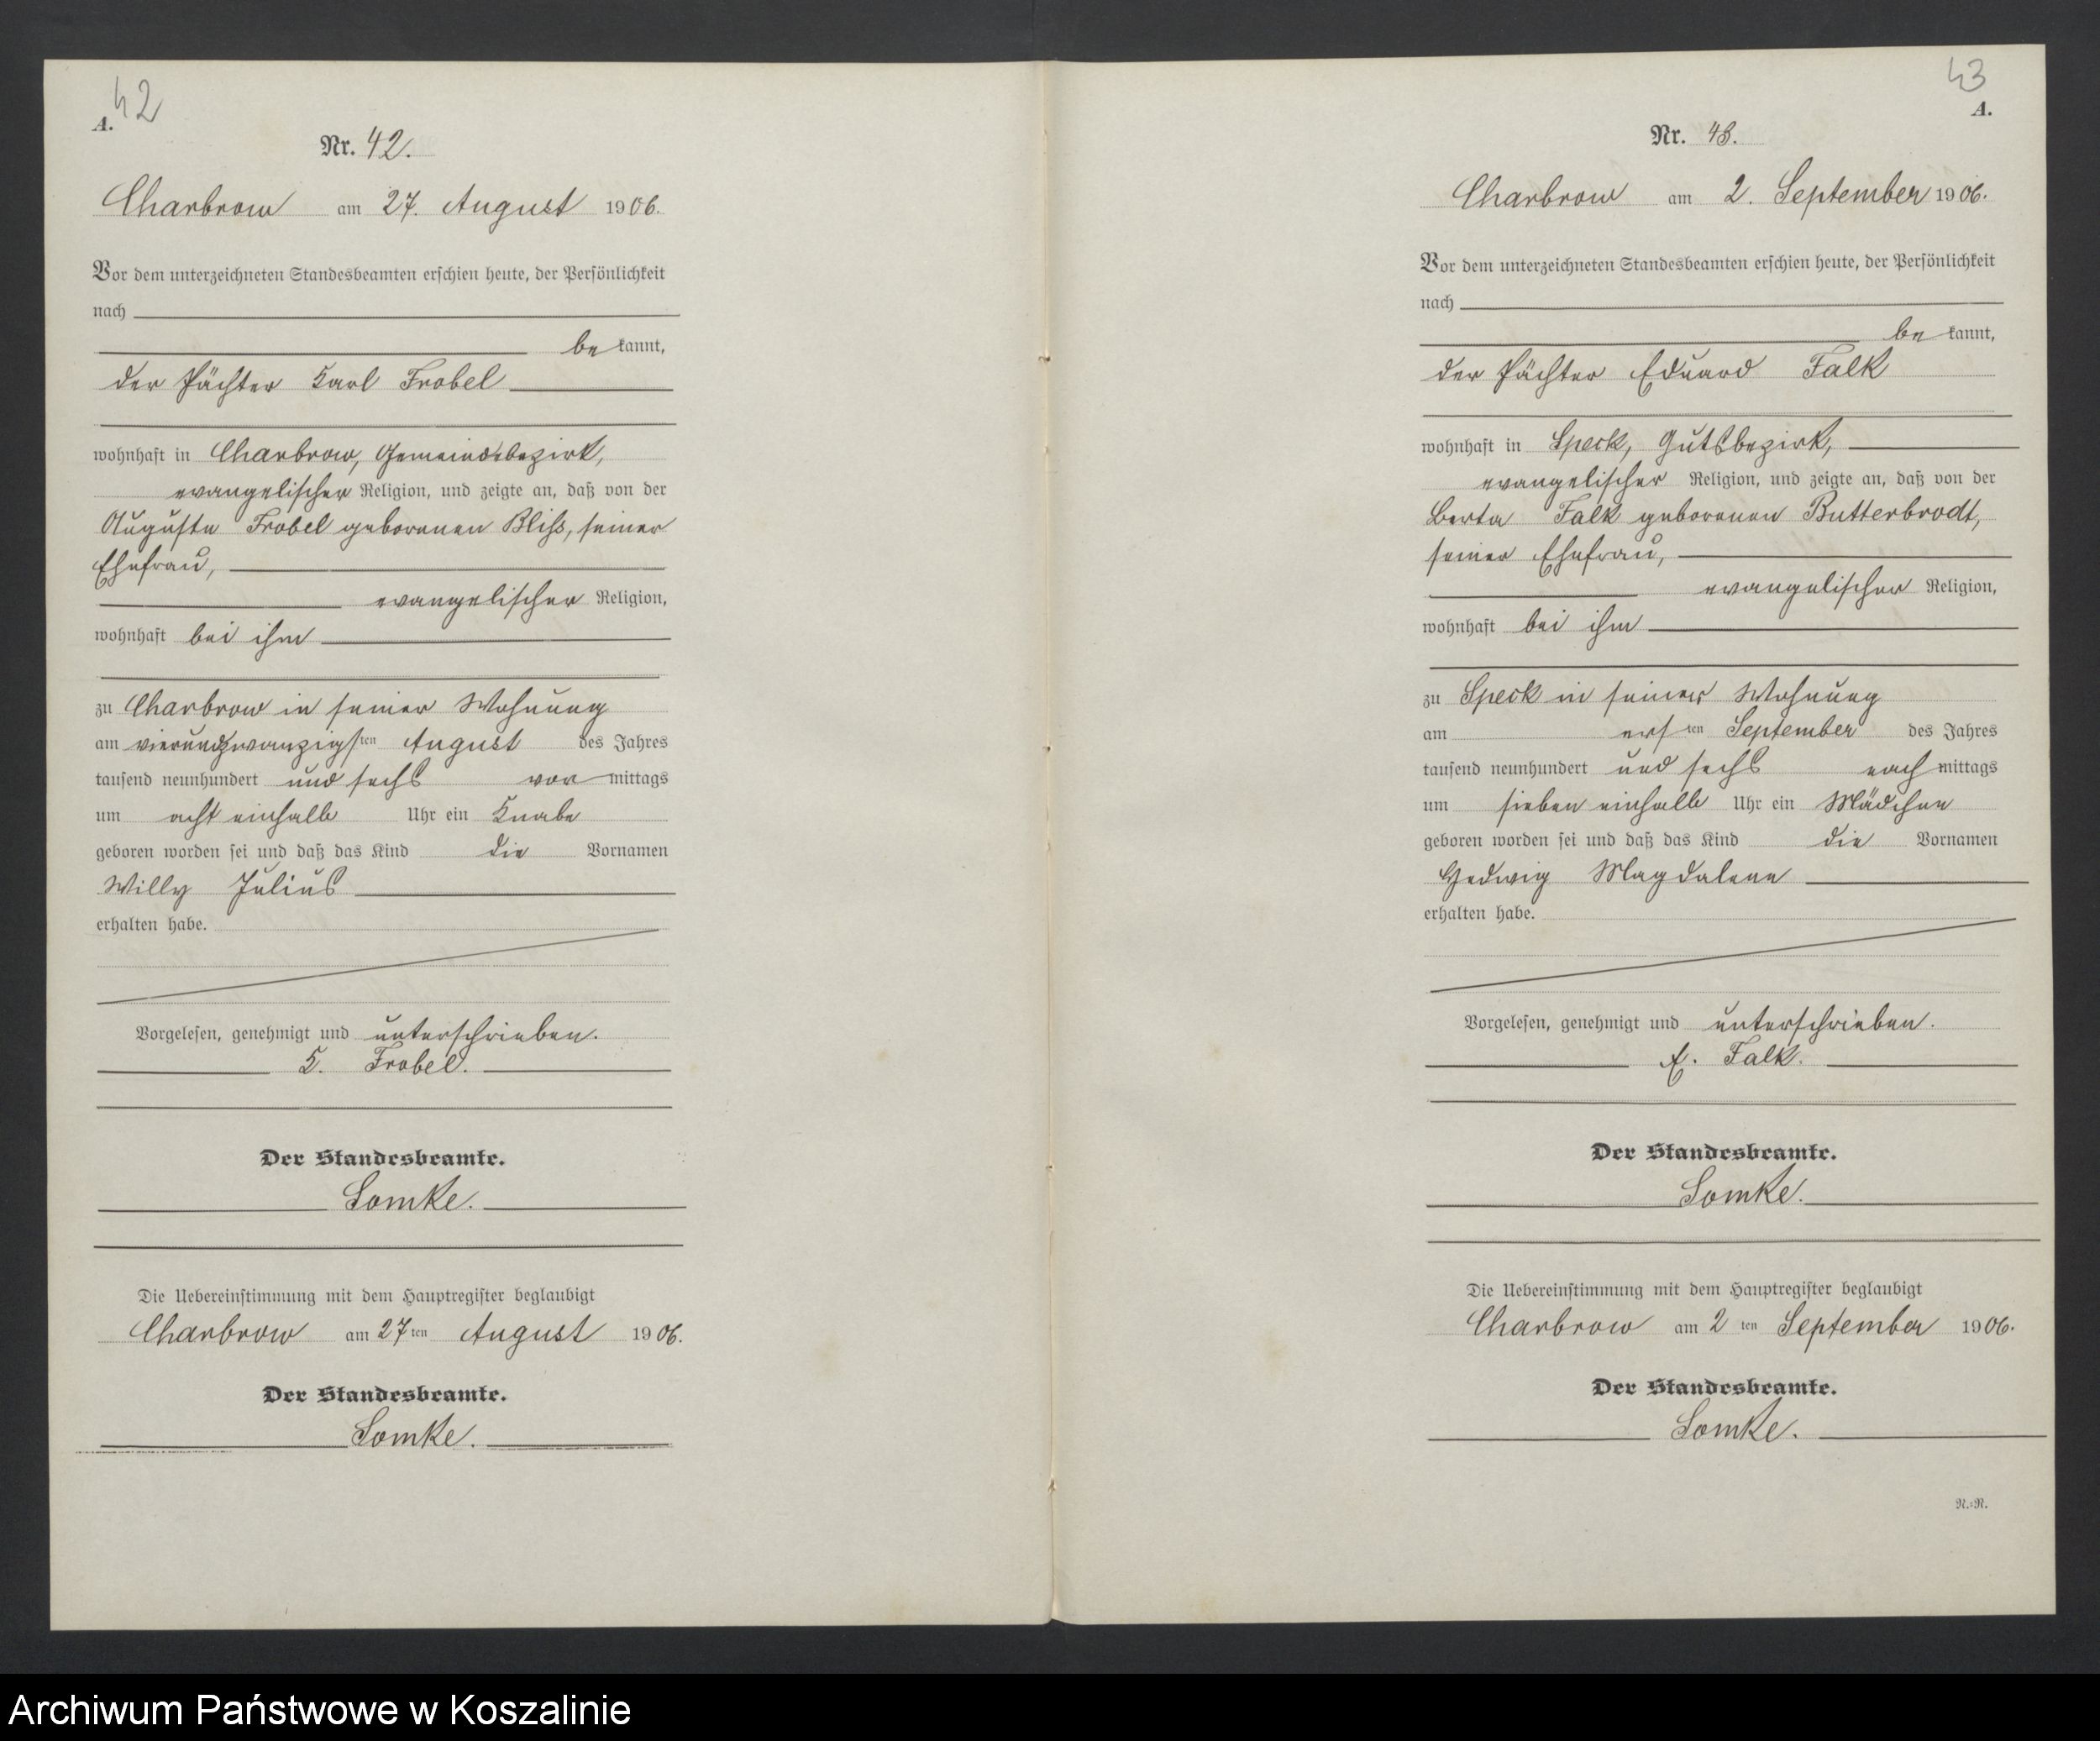 42
A.
Nr. 42.
Charbrow am 27. August 1906.
Vor dem unterzeichneten Standesbeamten erschien heute, der Persönlichkeit
nach
be kannt,
der Pächter Karl Frobel
wohnhaft in Charbrow, Gemeindebezirk,
evangelischer Religion, und zeigte an, daß von der
Auguste Frobel geborenen Bliß, seiner
Ehefrau,
evangelischer Religion,
wohnhaft bei ihm
zu Charbrow in seiner Wohnung
am vierundzwanzigsten August des Jahres
tausend neunhundert und sechs vor mittags
um acht einhalb Uhr ein Knabe
geboren worden sei und daß das Kind die Vornamen
Willy Julius
erhalten habe.
Vorgelesen, genehmigt und unterschrieben.
K. Frobel.
Der Standesbeamte.
Lomke.
Die Uebereinstimmung mit dem Hauptregister beglaubigt
Charbrow am 27ten August 1906.
Der Standesbeamte.
Lomke.
43
A.
Nr. 43.
Charbrow am 2. September 1906.
Vor dem unterzeichneten Standesbeamten erschien heute, der Persönlichkeit
nach
be kannt,
der Pächter Eduard Falk
wohnhaft in Speck, Gutsbezirk,
evangelischer Religion, und zeigte an, daß von der
Berta Falk geborenen Butterbrodt,
seiner Ehefrau,
evangelischer Religion,
wohnhaft bei ihm
zu Speck in seiner Wohnung
am ersten September des Jahres
tausend neunhundert und sechs nach mittags
um sieben einhalb Uhr ein Mädchen
geboren worden sei und daß das Kind die Vornamen
Hedwig Magdalene
erhalten habe.
Vorgelesen, genehmigt und unterschrieben.
E. Falk.
Der Standesbeamte.
Lomke.
Die Uebereinstimmung mit dem Hauptregister beglaubigt
Charbrow am 2 ten September 1906.
Der Standesbeamte.
Lomke.
N.=N.
Archiwum Państwowe w Koszalinie